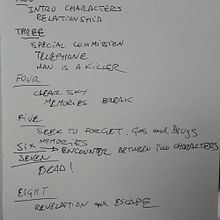 INTRO CHARACTERS
RELATIONSHIP
THREE
SPECIAL COMMISSION
TELEPHONE
MAN IS A KILLER
FOUR
CLEAR SKY
MEMORIES BREAK
FIVE
SEEK TO FORGET. Girls and Drugs
MEMORIES
SIX → ENCOUNTER BETWEEN TWO CHARACTERS
SEVEN
DEAD!
EIGHT
REVELATION and ESCAPE